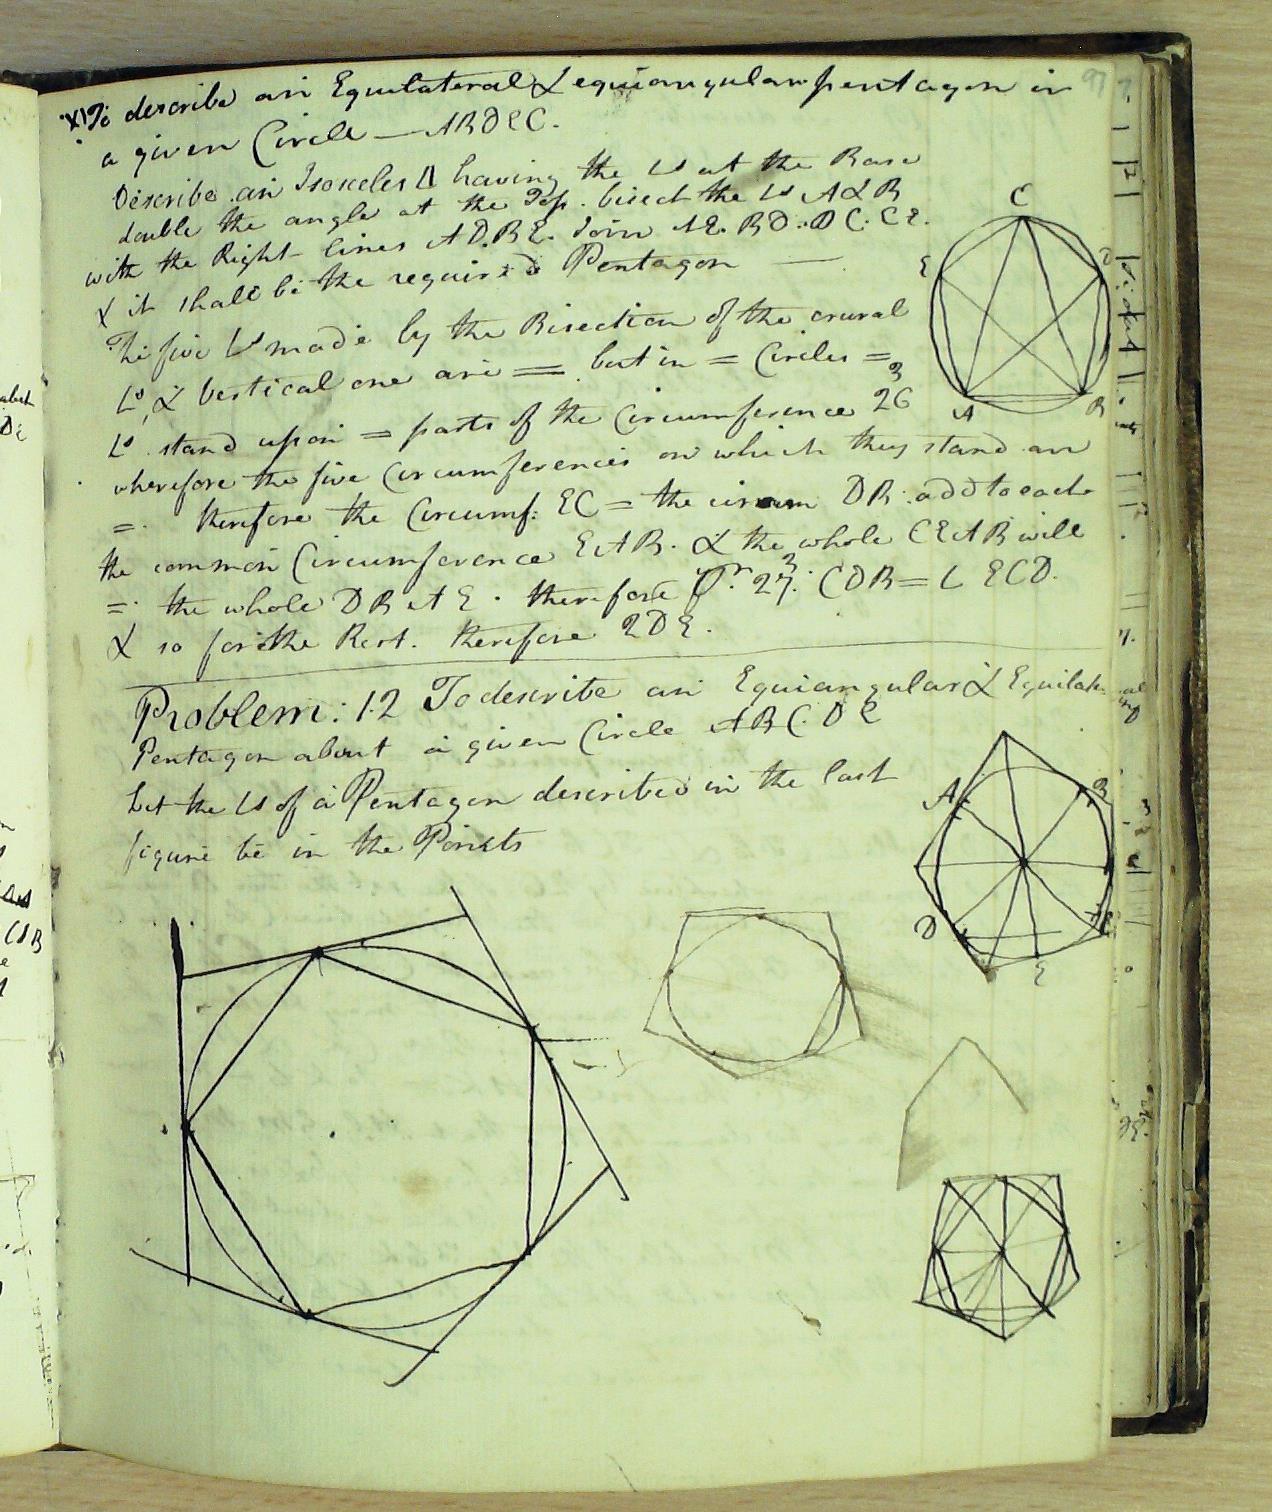 97
XI To describe an Equilateral & equiangular pentagon in
a given Circle — ABDEC.
Describe an Isosceles Δ having the ∠s at the Base
double the angle at the Top. bisect the ∠s A & B
with the Right lines AD. BE. Join AE. BD. DC. CE.
& it shall be the required Pentagon —
The five ∠s made by the Bisection of the crural
∠s, & Vertical one are = but in = Circles =
∠s stand upon = parts of the Circumference 26 3
wherefore the five Circumferences on which they stand are
=. therefore the Circumf: EC = the circum DB. add to each
the common Circumference EAB. & the whole CEAB will
=. the whole DBAE. therefore Pr. 27. 3 CDB = ∠ ECD.
& so for the Rest. therefore 2DE.
Problem: 12 To describe an Equiangular & Equilat
Pentagon about a given Circle ABCDE
Let the ∠s of a Pentagon described in the last
figure be in the Points
C
E
D
A
B
A
B
C
D
E